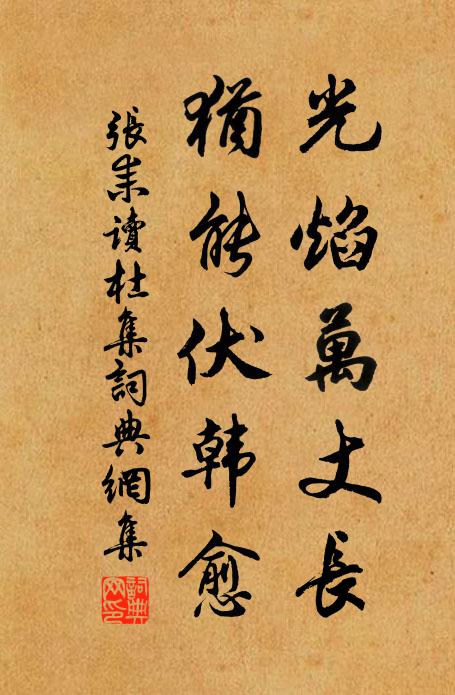 光焰萬丈長
猶能伏韓愈
張耒讀杜集詞典網集
詞典網印